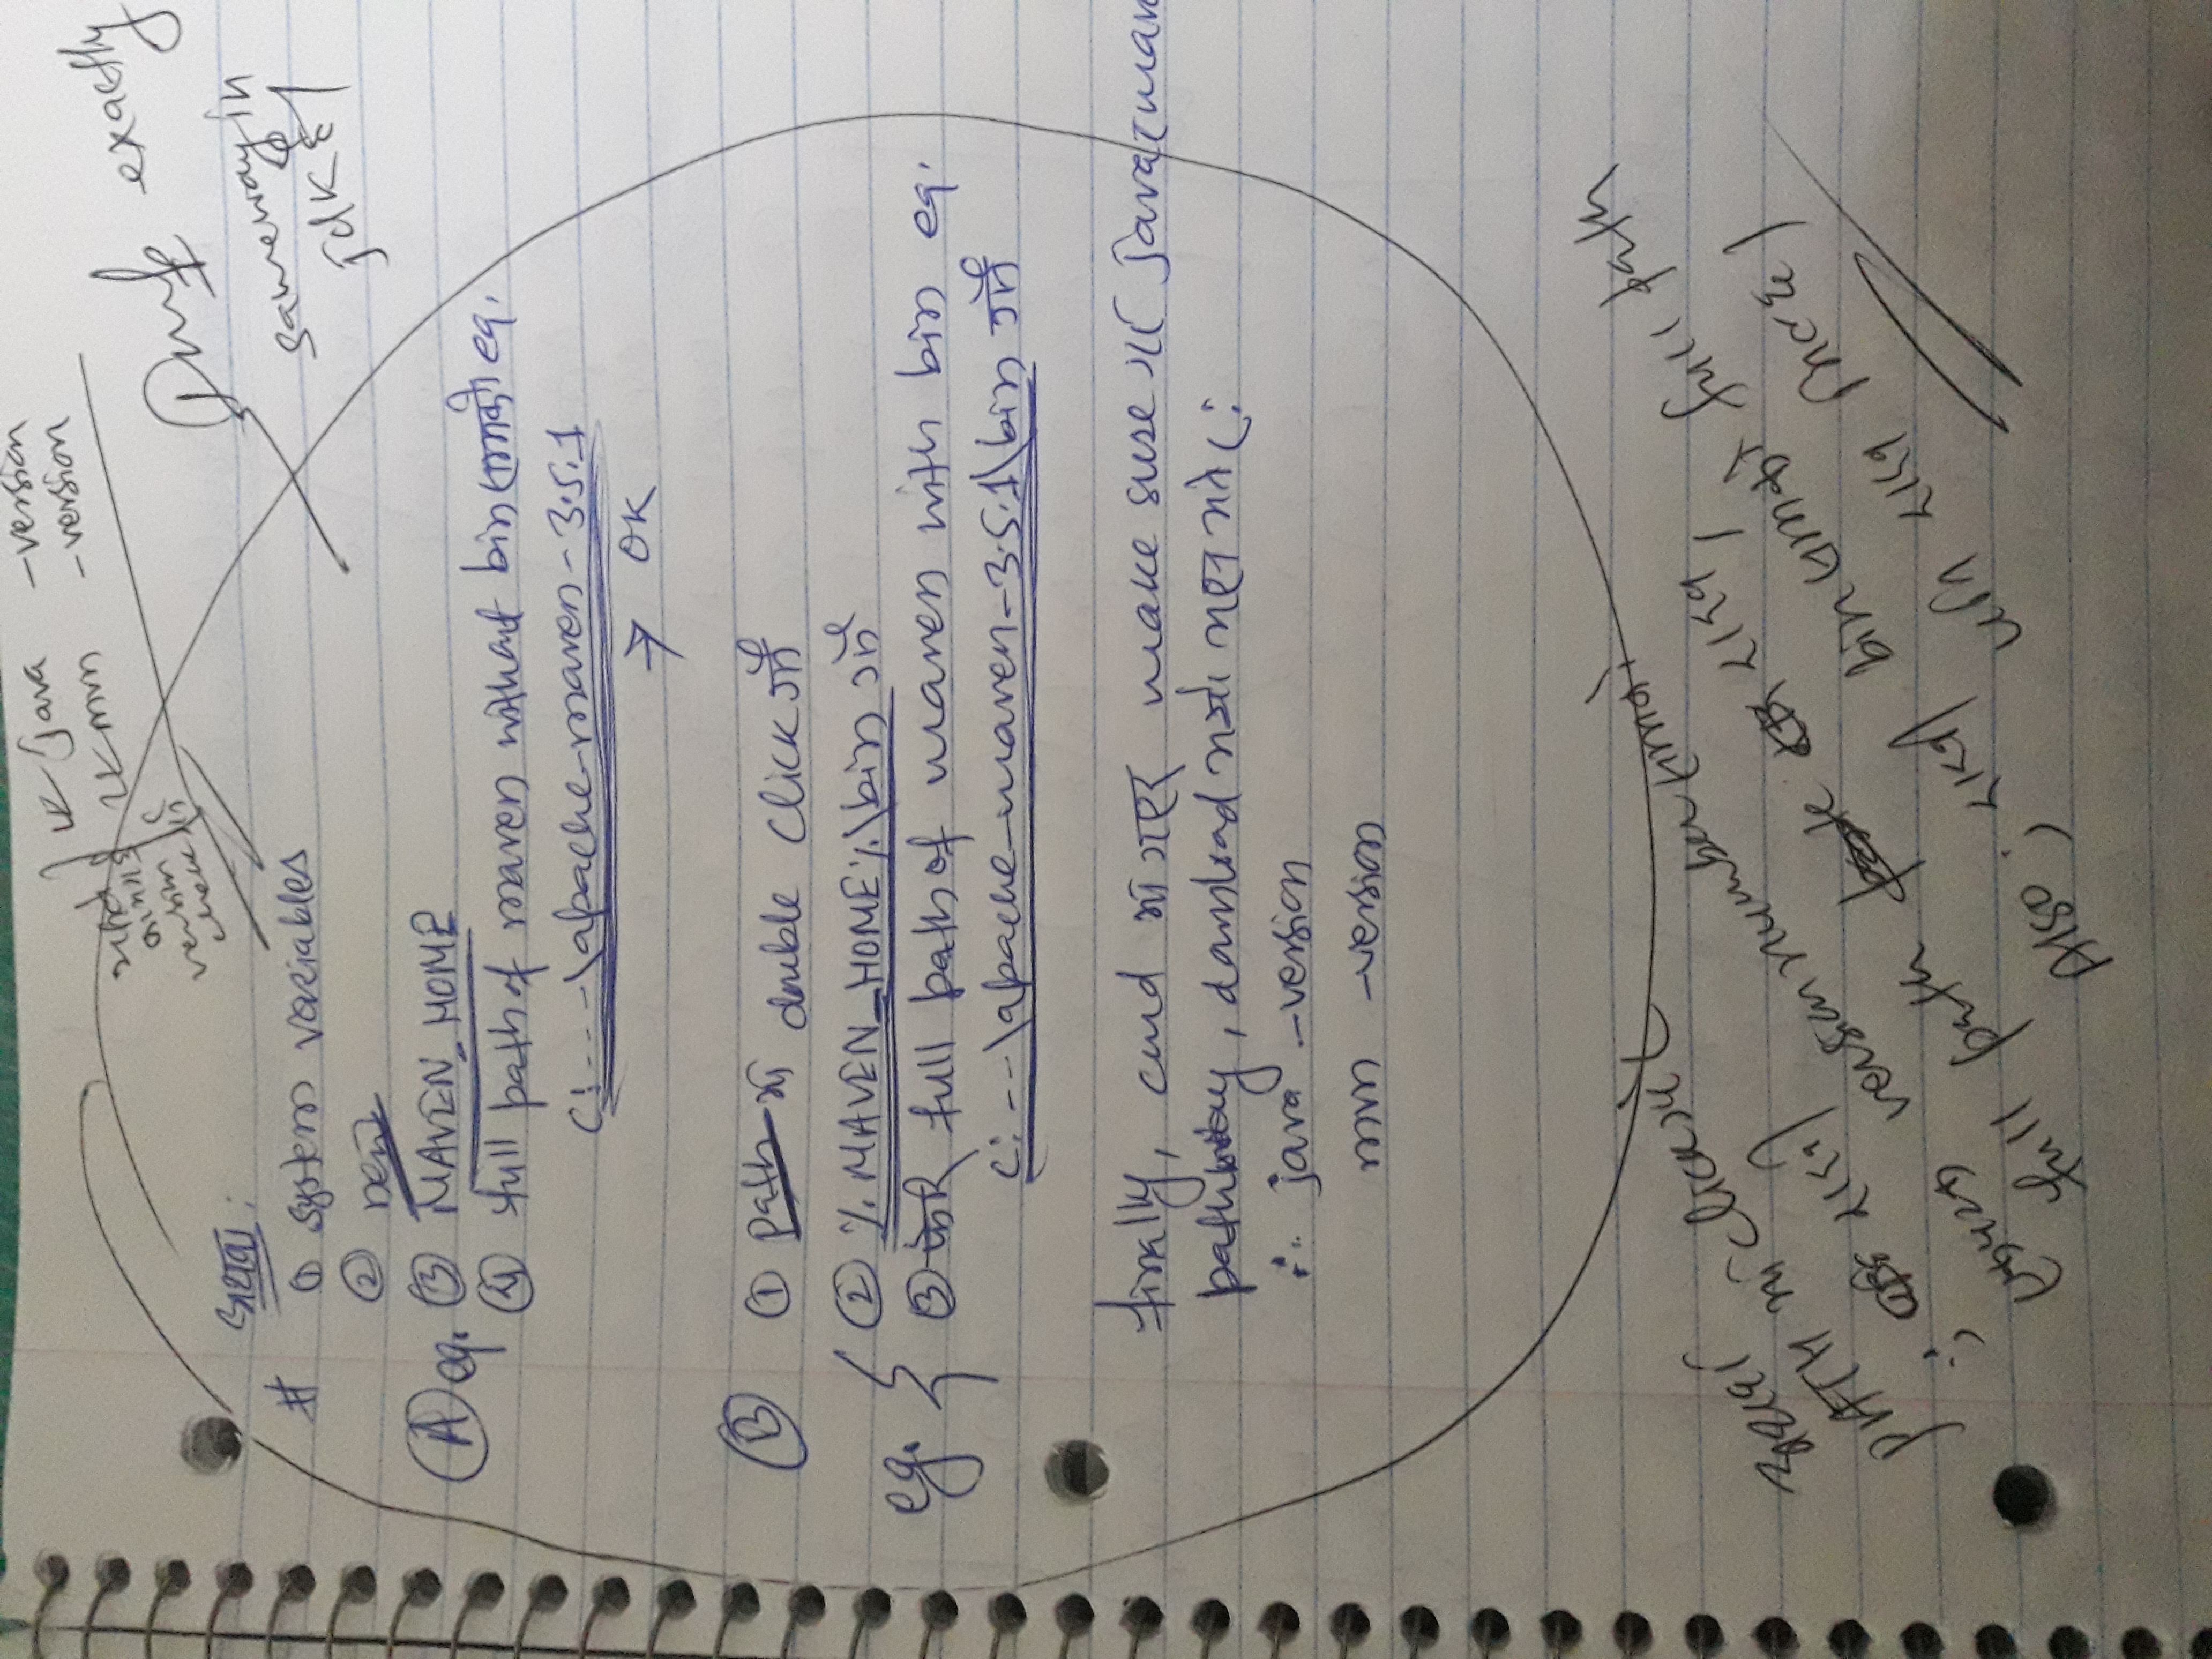 java -version
mvn -version
version
check
exactly
same way in
jdk छ।
अथवा:
# ① System variables
② new
Ⓐ eg. ③ MAVEN_HOME
④ full path of maven without bin सम्मको eg.
C:---\apache-maven-3.5.1
→ OK
Ⓑ ① Path मा double click गर्ने
② %MAVEN_HOME%\bin गर्ने
eg. ③ full path of maven with bin eg.
C:---\apache-maven-3.5.1\bin गर्ने
finally, cmd मा गएर make sure गर्न java र mav
path, download भयो भएन भनेर:
∴ java -version
mvn -version
अथवा
PATH मा click गर्ने
; राखी
version number सम्मको
full path राख्न,
Also ; राखी bin सम्मको full path
पनि राख्न मिल्छ।